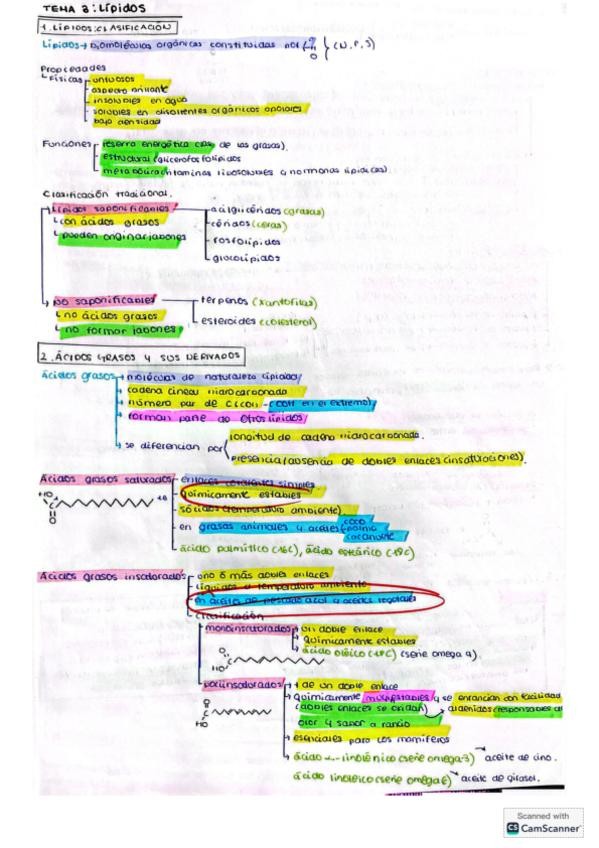 TEMA 3: LípidOS
1. LÍPIDOS: CLASIFICACIÓN
Lípidos → biomoléculas orgánicas constituidas por C H O (N, P, S)
Propiedades
Físicas untuosos
aspecto brillante
insolubles en agua
solubles en disolventes orgánicos apolares
baja densidad
Funciones reserva energética de las grasas).
estructural (glicerofosfolípidos
metabólica vitaminas liposolubles y hormonas lipídicas).
Clasificación tradicional.
Lípidos saponificables acilglicéridos (grasas)
con ácidos grasos céridos (ceras)
pueden originar jabones fosfolípidos
glucolípidos
No saponificables terpenos (xantofilas)
no ácidos grasos
no forman jabones esteroides (colesterol)
2. ÁCIDOS GRASOS Y SUS DERIVADOS
Ácidos grasos → moléculas de naturaleza lipídica
cadena lineal hidrocarbonada
número par de C (COOH en el extremo)
forman parte de otros lípidos
→ se diferencian por longitud de cadena hidrocarbonada.
presencia/ausencia de dobles enlaces (insaturaciones).
Ácidos grasos saturados enlaces covalentes simples
HO químicamente estables
O sólidos (temperatura ambiente)
en grasas animales y aceites coco palma cacahuete
ácido palmítico (16C), ácido esteárico (18C)
Ácidos grasos insaturados uno ó más dobles enlaces
líquidos a temperatura ambiente
en aceite de pescado azul y aceites vegetales
clasificación
monoinsaturados un doble enlace
químicamente estables
ácido oléico (18C) (serie omega 9)
O
HO
poliinsaturados + de un doble enlace
O químicamente muy inestables y se enrancian con facilidad
HO (dobles enlaces se oxidan) aldehídos responsables del
olor y sabor a rancio
esenciales para los mamíferos
ácido α-linolénico (serie omega 3) → aceite de lino.
ácido linoleico (serie omega 6) → aceite de girasol.
Scanned with
CS CamScanner